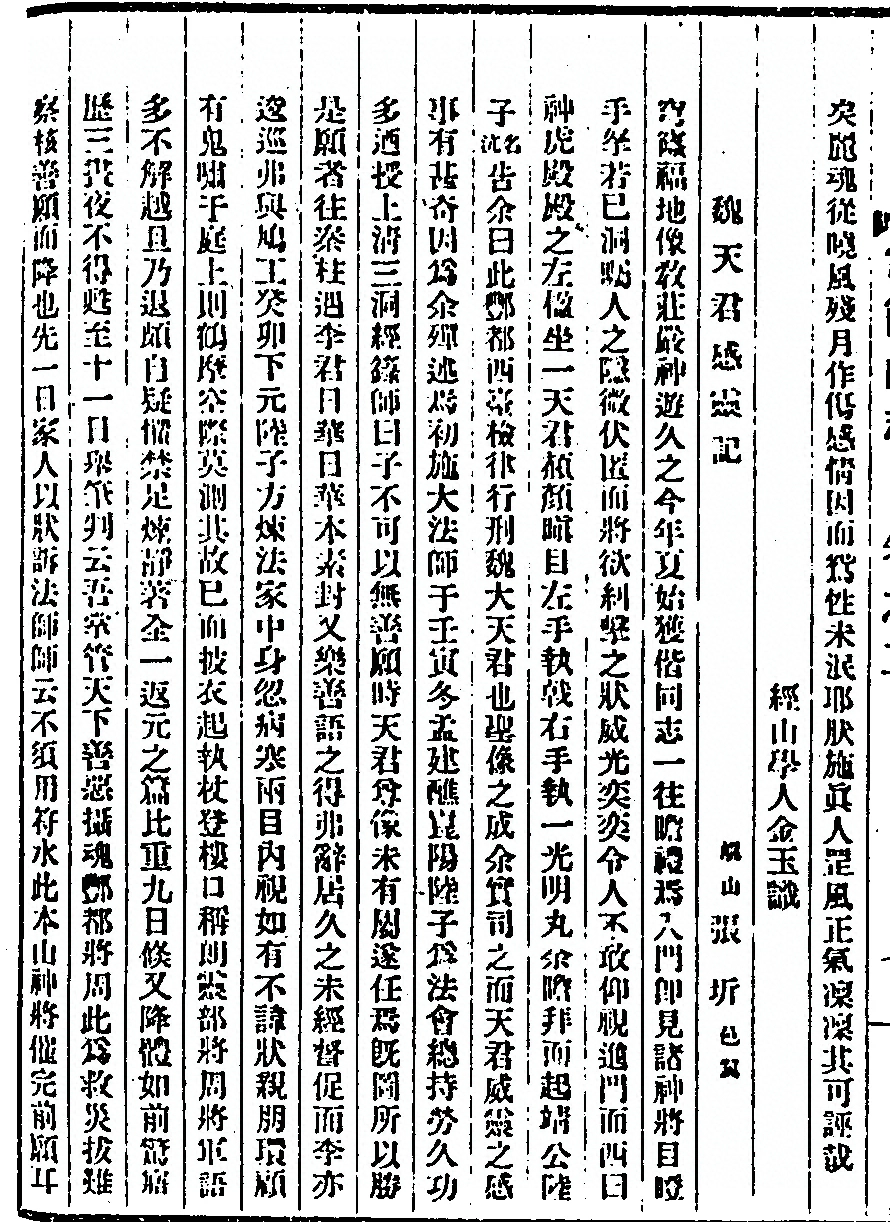 矣麗魂從曉風殘月作傷感情因而為性未泯耶肰施眞人罡風正氣凜凜其可誣哉
經山學人金玉識
魏天君感靈記
崐山張圻邑賢
穹窿福地像教莊嚴神遊久之今年夏始獲偕同志一往瞻禮焉入門卽見諸神將目瞪
手拏若已洞矚人之隱微伏匿而將欲糾擊之狀威光奕奕令人不敢仰視進門而西曰
神虎殿殿之左傲坐一天君赬顏瞋目左手執戟右手執一光明丸余瞻拜而起靖公陸
子名沈告余曰此酆都西臺檢律行刑魏大天君也聖像之成余實司之而天君威靈之感
事有甚奇因為余殫述焉初施大法師于壬寅冬孟建醮崑陽陸子為法會總持勞久功
多迺授上清三洞經籙師曰子不可以無善願時天君尊像未有閎遂任焉旣圖所以勝
是願者往泰柱遇李君日華日華本素封又樂善語之得弗辭居久之未經督促而李亦
逡巡弗與鳩工癸卯下元陸子方煉法家中身忽病寒兩目內視如有不諱狀親朋環顧
有鬼嘯于庭上則鶴摩空際莫測其故已而披衣起執杖登樓口稱朗靈部將周將軍語
多不解越旦乃退頗自疑懼禁足煉靜著全一返元之篇比重九日倐又降體如前驚寤
歷三晝夜不得甦至十一日舉筆判云吾掌管天下善惡攝魂酆都將周此為救災拔難
察核善願而降也先一日家人以狀訴法師師云不須用符水此本山神將催完前願耳